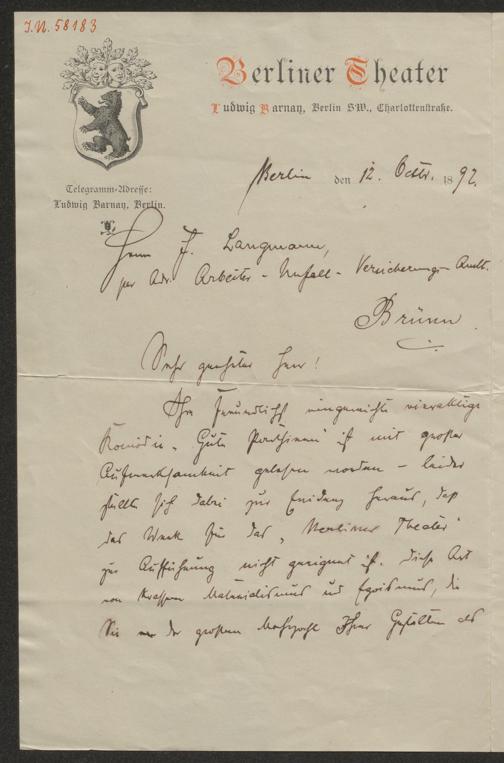 J.N. 58183
Berliner Theater
Ludwig Barnay, Berlin SW., Charlottenstraße.
Berlin den 12. Octbr. 1892.
Telegramm-Adresse:
Ludwig Barnay, Berlin.
Herrn J. Langmann,
per Adr. Arbeiter-Unfall-Versicherungs-Anst.
Brünn.
Sehr geehrter Herr!
Ihre freundlichst eingereichte vieraktige
Komödie „Gute Parthieen" ist mit großer
Aufmerksamkeit gelesen worden – leider
stellte sich dabei zur Evidenz heraus, daß
das Werk für das „Berliner Theater"
zur Aufführung nicht geeignet ist. Diese Art
von krassem Materialismus und Egoismus, die
Sie der großen Mehrzahl Ihrer Gestalten als